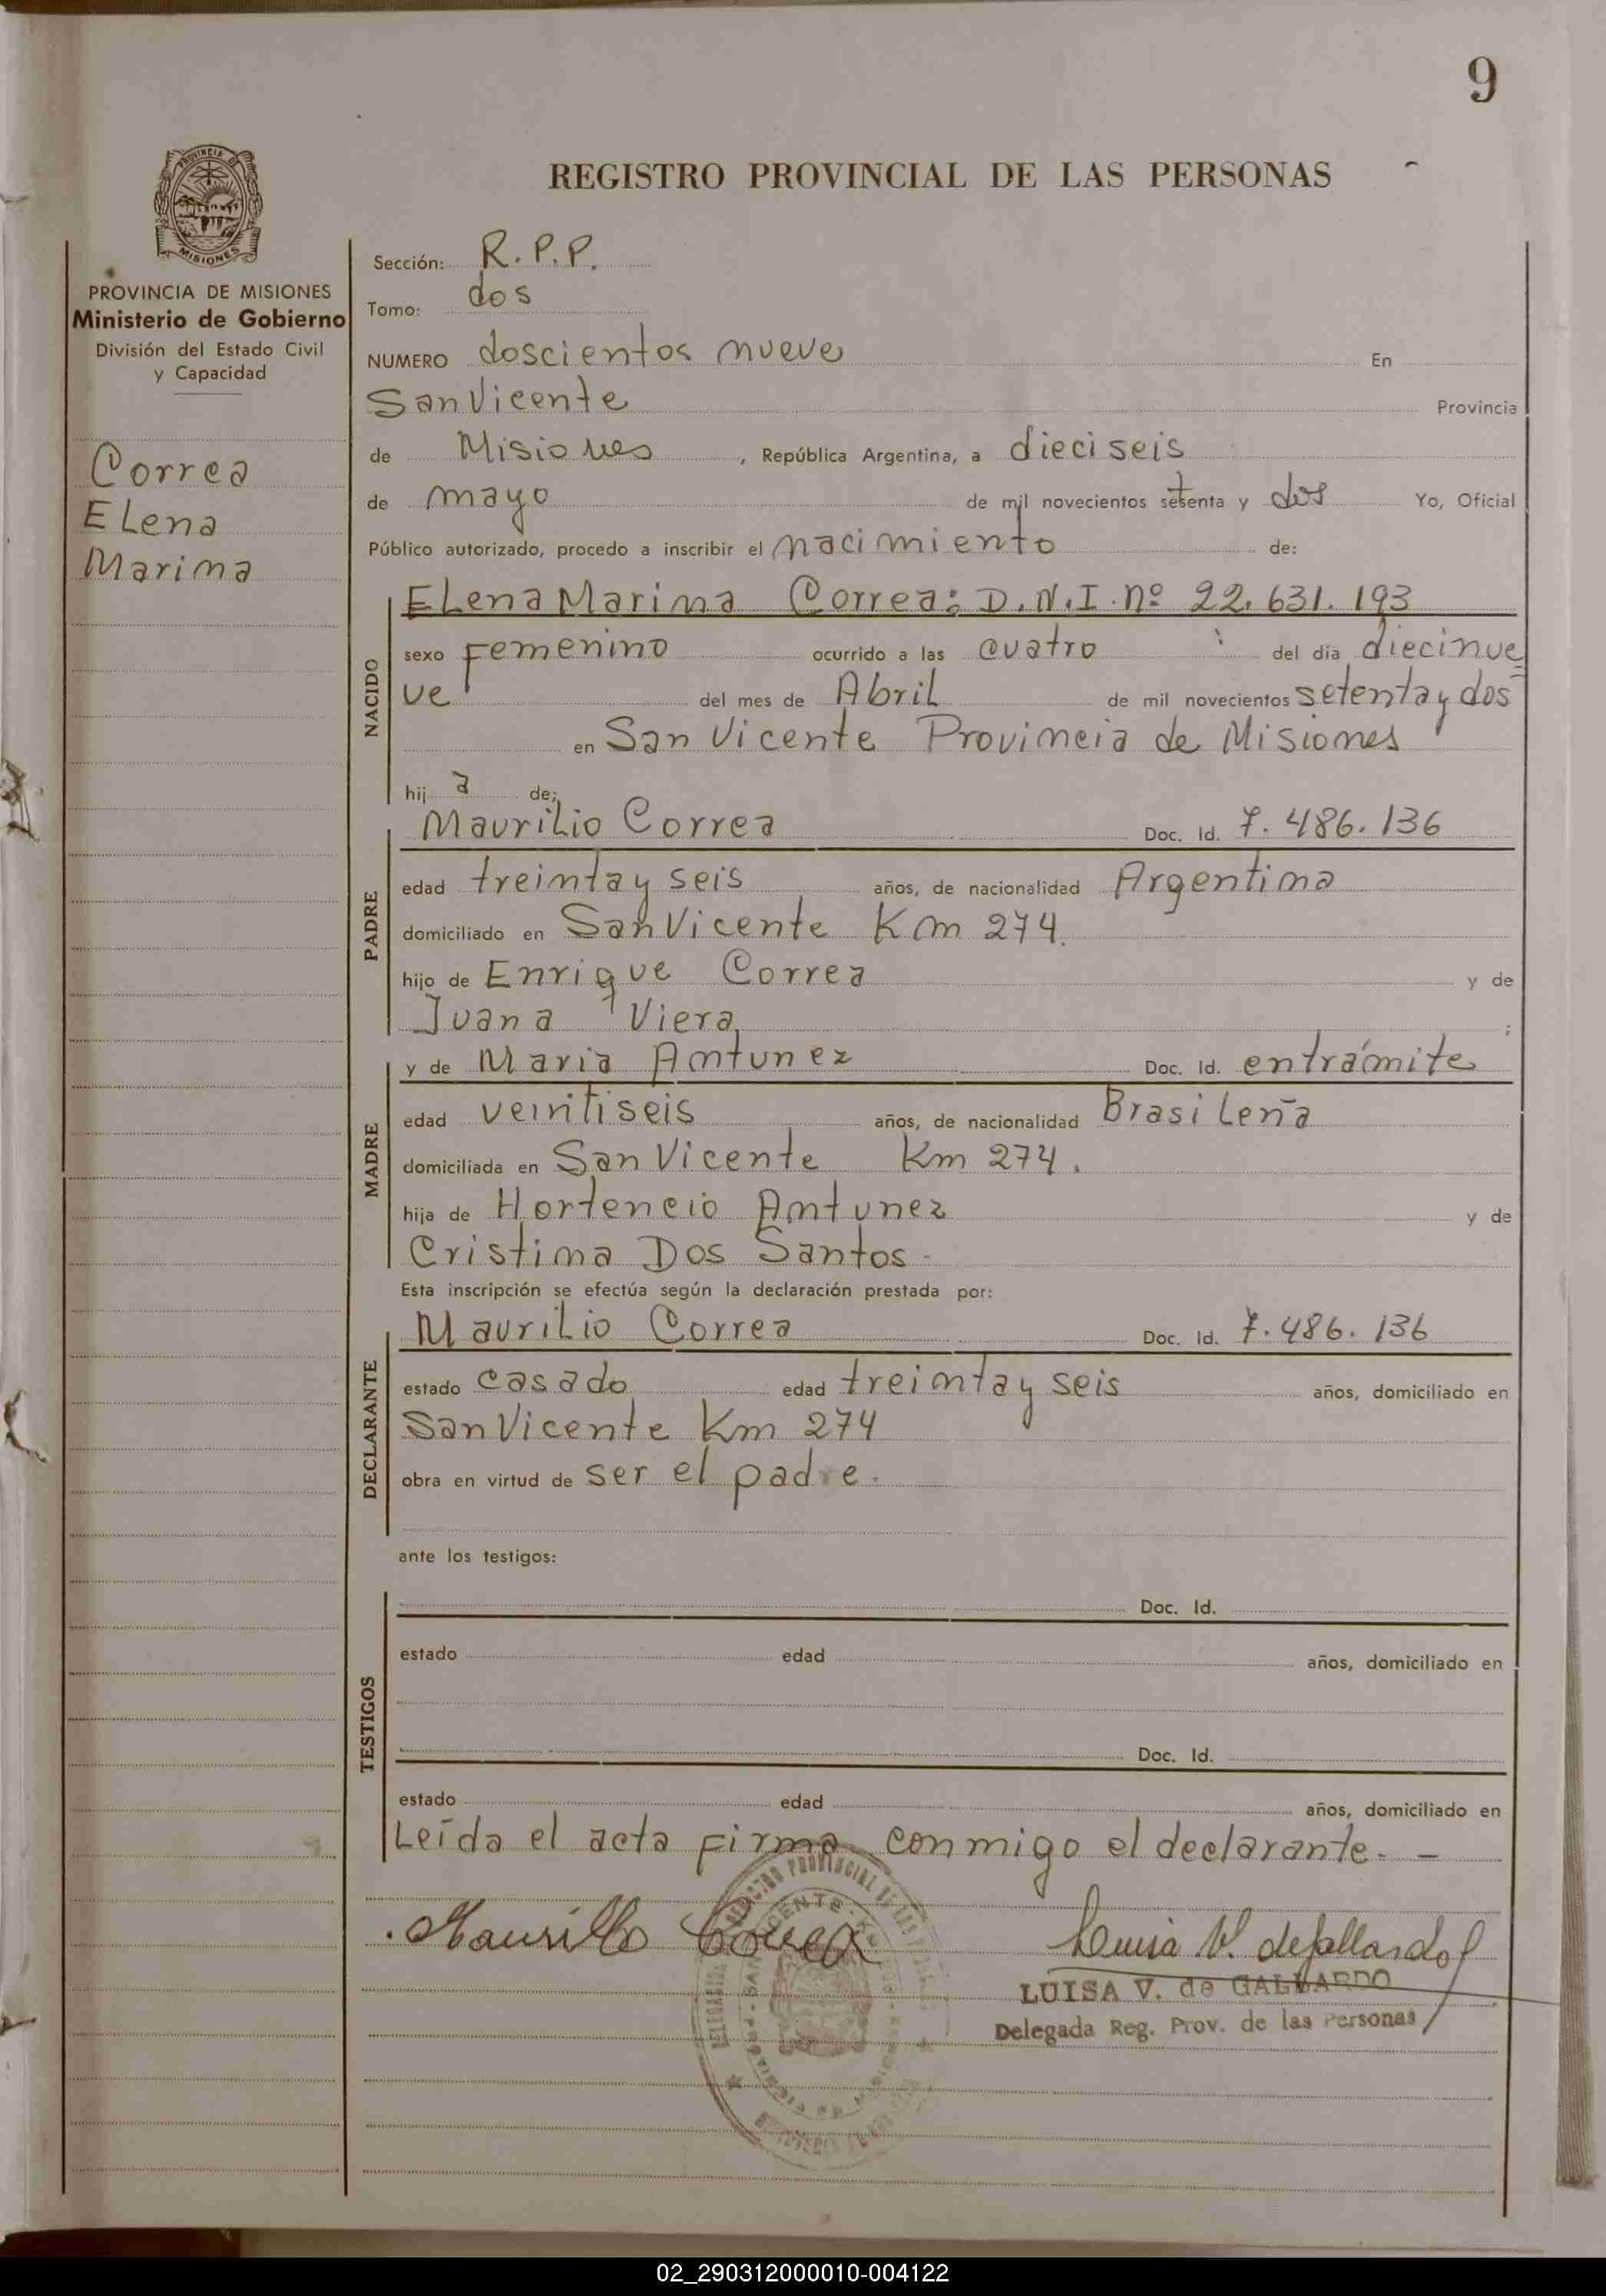 9
REGISTRO PROVINCIAL DE LAS PERSONAS
PROVINCIA DE
MISIONES
PROVINCIA DE MISIONES
Ministerio de Gobierno
División del Estado Civil
y Capacidad
Correa
Elena
Marina
Sección: R.P.P.
Tomo: dos
NUMERO doscientos nueve En
San Vicente Provincia
de Misiones, República Argentina, a dieciseis
de mayo de mil novecientos setenta y dos Yo, Oficial
Público autorizado, procedo a inscribir el nacimiento de:
NACIDO
Elena Marina Correa: D.N.I. nº 22.631.193
sexo Femenino ocurrido a las cuatro del día diecinue=
ve del mes de Abril de mil novecientos setenta y dos
en San Vicente Provincia de Misiones
hija de;
PADRE
Maurilio Correa Doc. Id. 7.486.136
edad treinta y seis años, de nacionalidad Argentina
domiciliado en San Vicente Km 274.
hijo de Enrique Correa y de
Juana Viera ;
MADRE
y de Maria Antunez Doc. Id. en trámite
edad veintiseis años, de nacionalidad Brasileña
domiciliada en San Vicente Km 274.
hija de Hortencio Antunez y de
Cristina Dos Santos -
Esta inscripción se efectúa según la declaración prestada por:
DECLARANTE
Maurilio Correa Doc. Id. 7.486.136
estado casado edad treinta y seis años, domiciliado en
San Vicente Km 274
obra en virtud de ser el padre.
ante los testigos:
TESTIGOS
Doc. Id.
estado edad años, domiciliado en
Doc. Id.
estado edad años, domiciliado en
Leída el acta firma conmigo el declarante. -
Maurilio Correa
Luisa V. de Gallardo
LUISA V. de GALLARDO
Delegada Reg. Prov. de las Personas
02_290312000010-004122